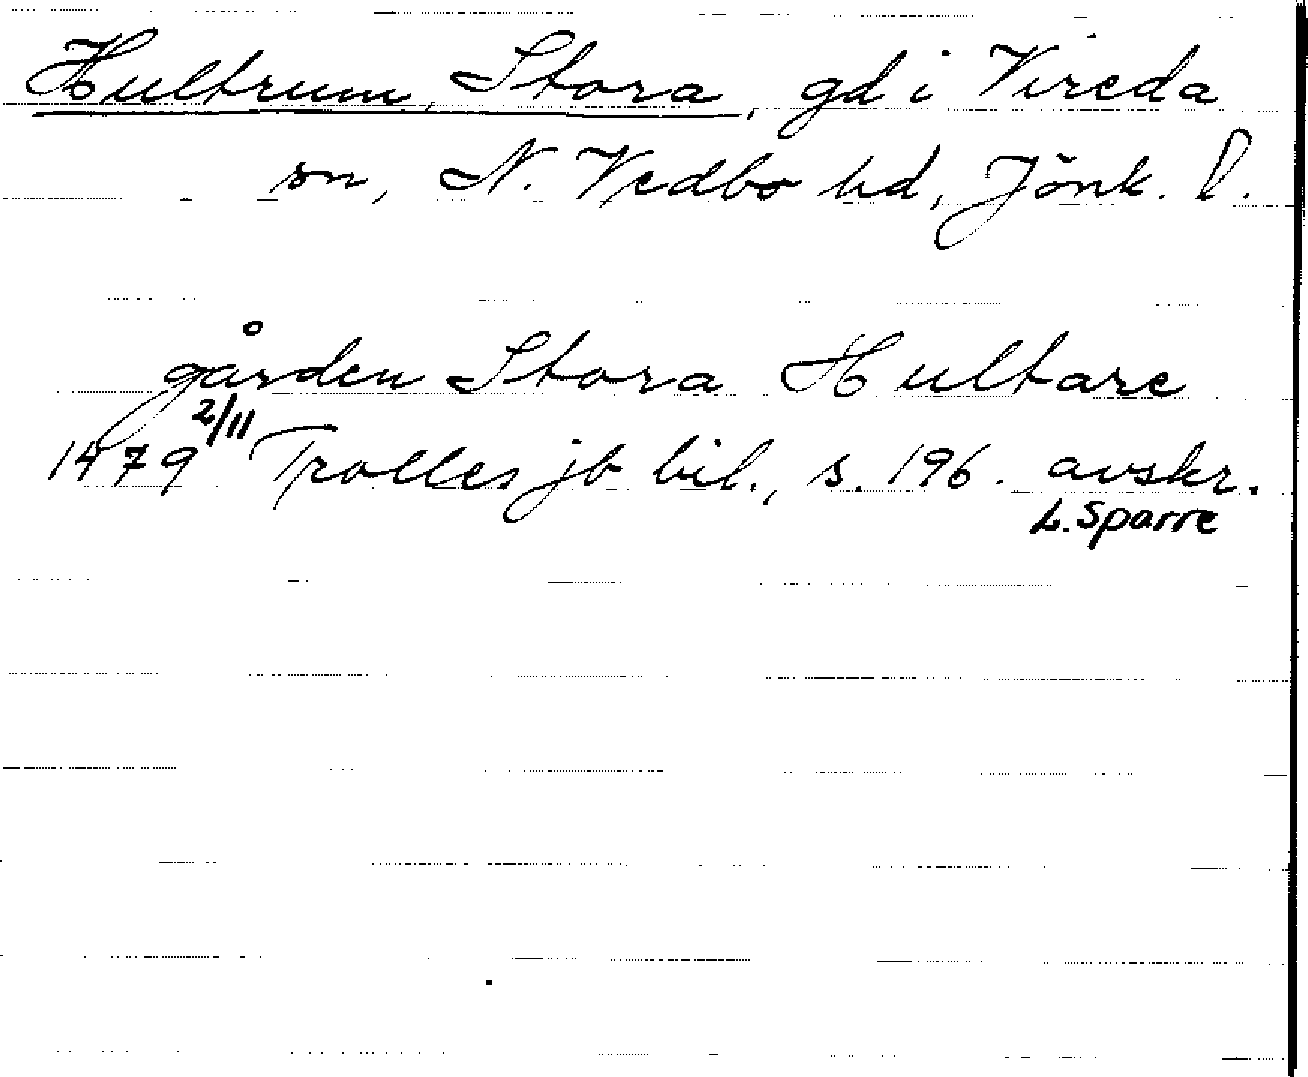 Hultrum, Stora, gd i Vireda
sn, N. Vedbo hd, Jönk. l.
gården Stora Hultare
1479 2/11 Trolles jb bil., s. 196. avskr.
L. Sparre